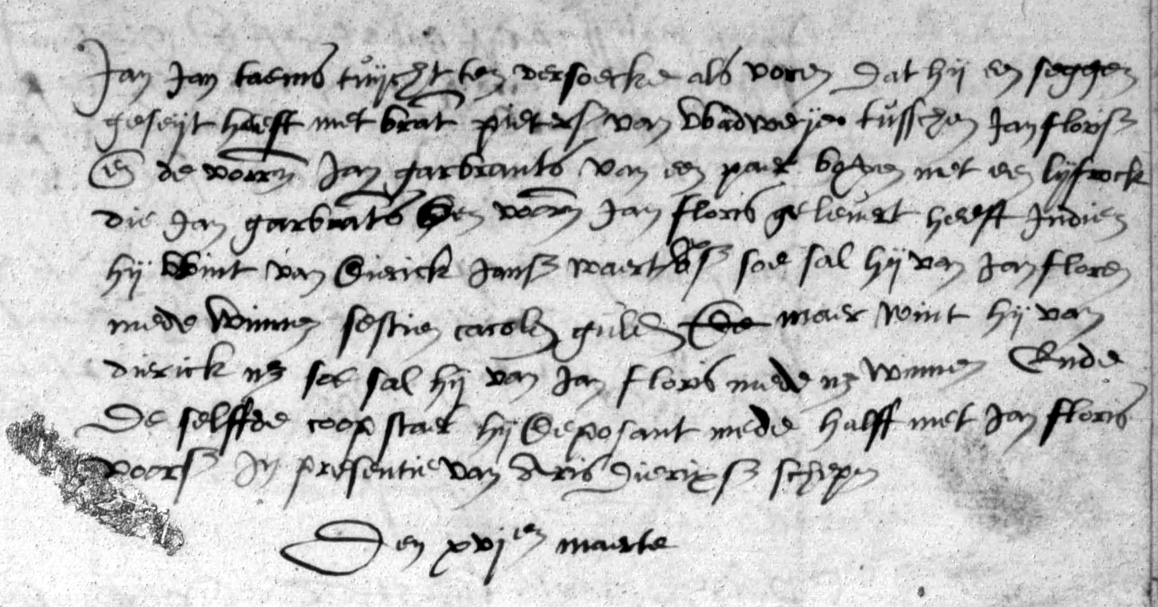 Jan Jan taems tuijcht ten versoecke als voren dat hij een seggen
geseijt heeft met brat pieters van tusschen Jan floris
En de voorn Jan garbrants van een paer met een lijfrock
die Jan garbrats den voorn Jan floris gelevert heeft Indien
hij wint van dierick Jans soe sal hij van Jan floren
mede winnen sestien caroly gulden maer wint hij van
dierick nz soe sal hij van Jan floris mede nz winnen Ende
De selffde coop staet hij deposant mede halff met Jan floris
voors In presentie van Aris dierixs schepn
Den xvjen maerte